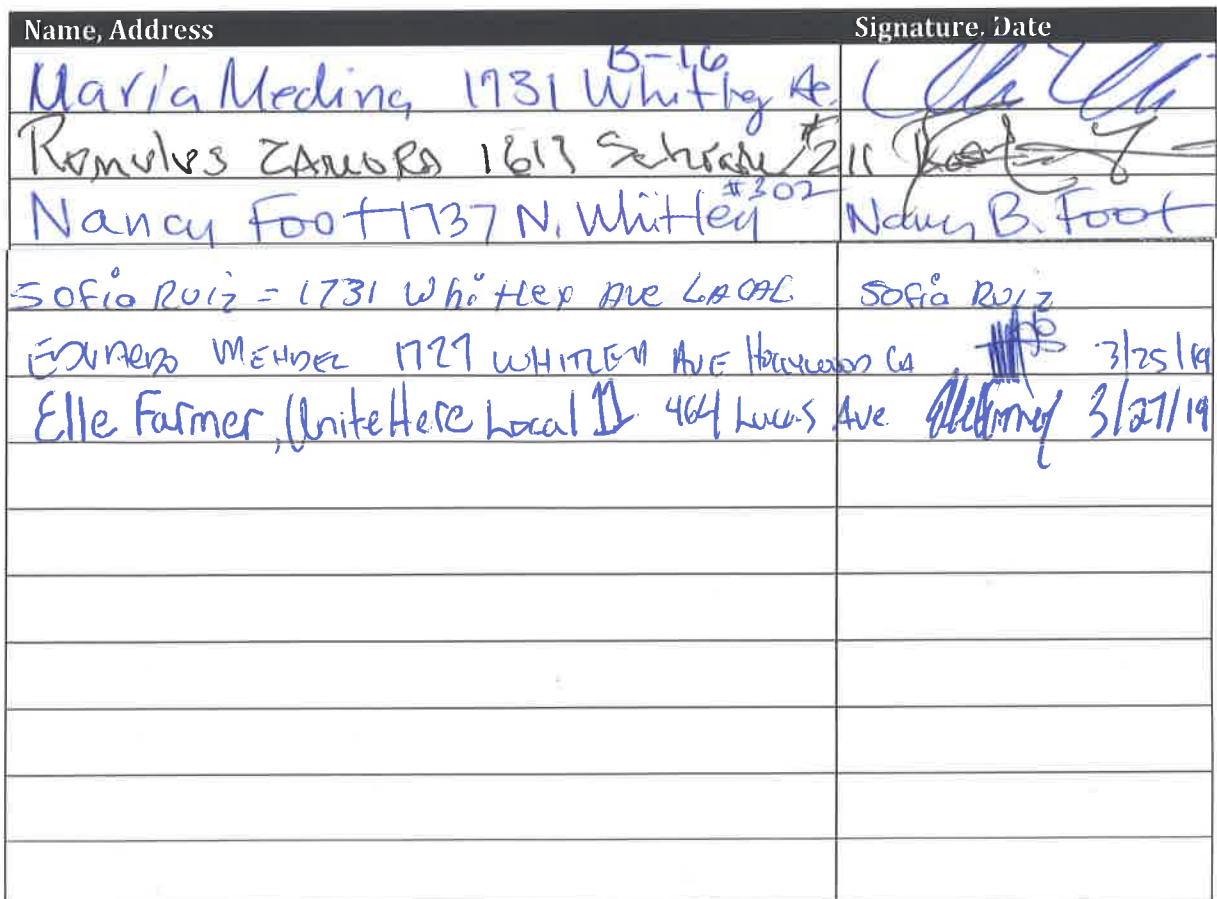 Name, Address Signature, Date
B-16
Maria Medina 1731 Whitley Ave.
Romulus ZAMORA 1613 #211
Nancy Foot 1737 N. Whitley #302 Nancy B. Foot
SOFia RUiz = 1731 Whitley AVE LACAL SOFia RUiz
1727 WHITLEY AVE Hollywood CA 3/25/19
Elle Farmer, UniteHere Local 11 464 Lucas Ave. 3/27/19